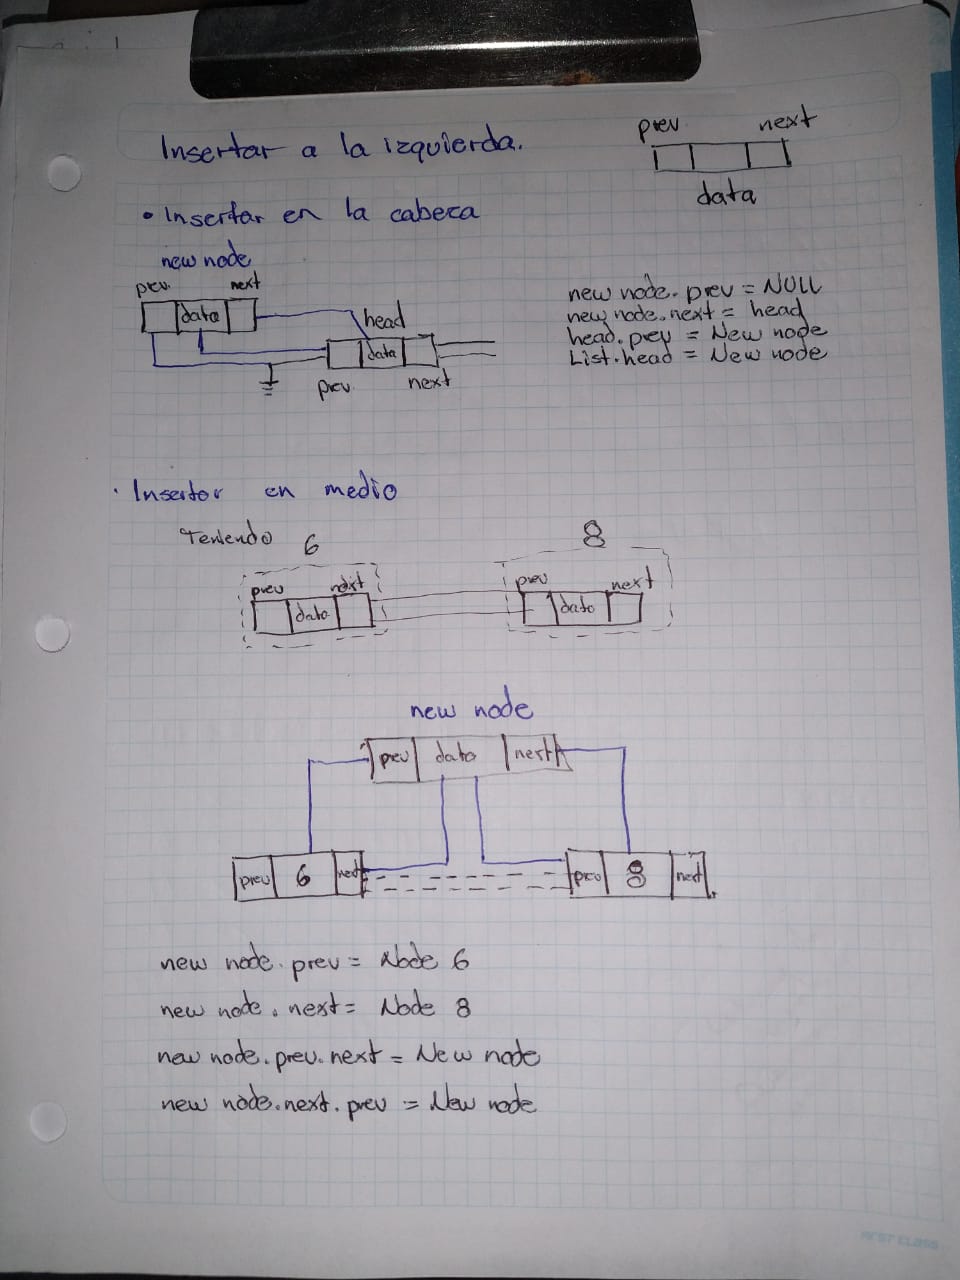 Insertar a la izquierda.
prev next
data
• Insertar en la cabeza
new node
prev. next
data
head
data
prev. next
new node. prev = NULL
new node. next = head
head. prev = New node
List. head = New node
· Insertar en medio
Teniendo 6 8
prev next prev next
dato dato
new node
prev dato next
prev 6 next prev 8 next
new node. prev = Node 6
new node. next = Node 8
new node. prev. next = New node
new node. next. prev = New node
FIRST CLASS